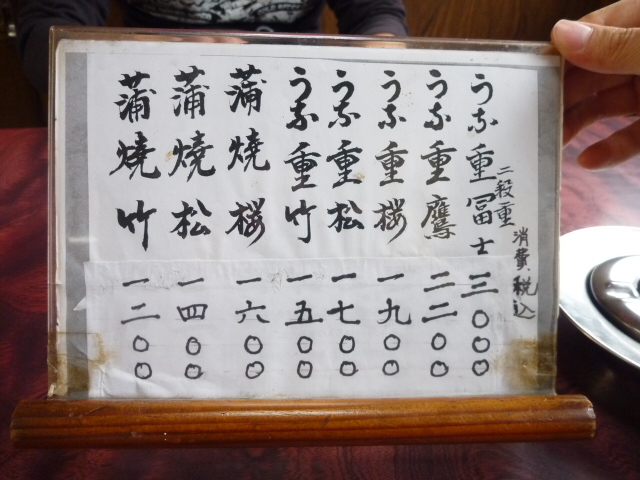 消費税込
二段重
うな重冨士 三〇〇〇
うな重鷹 二二〇〇
うな重桜 一九〇〇
うな重松 一七〇〇
うな重竹 一五〇〇
蒲焼桜 一六〇〇
蒲焼松 一四〇〇
蒲焼竹 一二〇〇